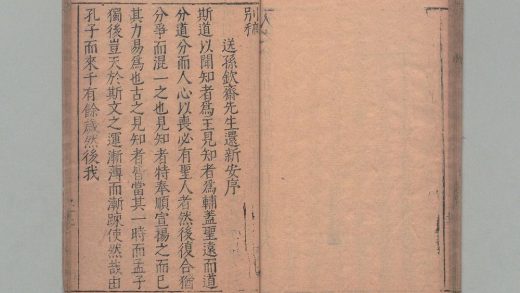 別稿
送孫欽齋先生還新安序
斯道以聞知者爲王見知者爲輔蓋聖遠而道
分道分而人心以喪必有聖人者然後復合猶
分爭而混一之也見知者特奉順宣揚之而已
其力易爲也古之見知者皆當其一時而孟子
獨後豈天於斯文之運漸薄而漸踈使然哉由
孔子而來千有餘歲然後我